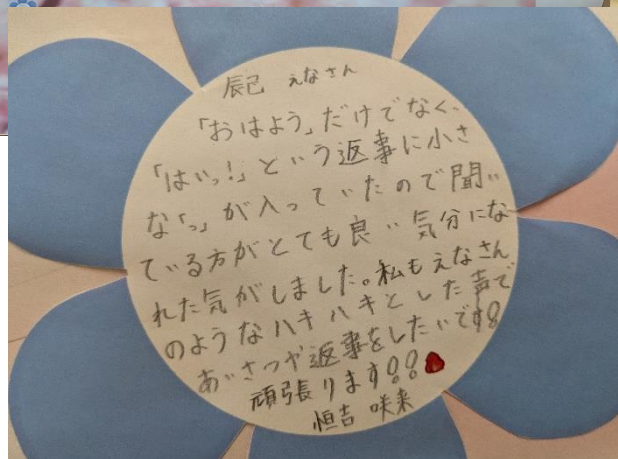 辰己 えなさん
「おはよう」だけでなく、
「はいっ!」という返事に小さ
な「っ」が入っていたので聞い
ている方がとても良い気分にな
れた気がしました。私もえなさん
のようなハキハキとした声で
あいさつや返事をしたいです!!
頑張ります!!
恒吉 咲来